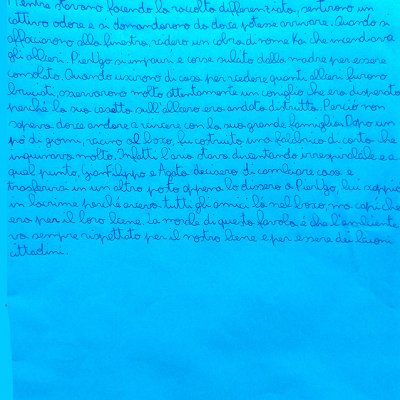 Mentre stavano facendo la raccolta differenziata, sentirono un
cattivo odore e si domandarono da dove potesse arrivare. Quando si
affacciarono alla finestra, videro un cobra di nome Ka che incendiava
gli alberi. Pierugo si impaurì e corse subito dalla madre per essere
consolato. Quando uscirono di casa per vedere quanti alberi furono
bruciati, osservarono molto attentamente un coniglio che era disperato
perché la sua casetta sull'albero era andata distrutta. Perciò non
sapeva dove andare a vivere con la sua grande famiglia. Dopo un
pò di giorni, vicino al bosco, fu costruita una fabbrica di carta che
inquinava molto. Infatti l'aria stava diventando irrespirabile e a
quel punto, Gianfilippo e Agata decisero di cambiare casa e
trasferirsi in un altro posto appena lo dissero a Pierugo, lui scoppiò
in lacrime perché aveva tutti gli amici lá nel bosco, ma capì che
era per il loro bene. La morale di questa favola è che l'ambiente
va sempre rispettato per il nostro bene e per essere dei buoni
cittadini.